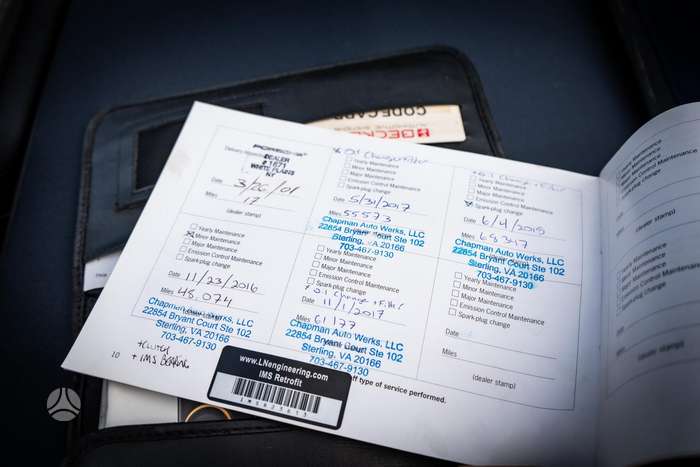 CODECARD
BECKER
PORSCHE
Delivery
DEALER
# 1671
WHITE PLAINS
NY
Date 3/26/01
Miles 17
(dealer stamp)
Oil Change + Filter
Yearly Maintenance
Minor Maintenance
Major Maintenance
Emission Control Maintenance
Spark-plug change
Date 5/31/2017
Miles 55573
Chapman Auto Werks, LLC
22854 Bryant Court Ste 102
Sterling, VA 20166
703-467-9130
Yearly Maintenance
Minor Maintenance
Major Maintenance
Emission Control Maintenance
Spark-plug change
Date 6/4/2019
Miles
Chapman Auto Werks, LLC
22854 Bryant Court Ste 102
Sterling, VA 20166
703-467-9130
Yearly Maintenance
Minor Maintenance
Major Maintenance
Emission Control Maintenance
Spark-plug change
Date 11/23/2016
Miles 48,074
Chapman Auto Werks, LLC
22854 Bryant Court Ste 102
Sterling, VA 20166
703-467-9130
+ Clutch
+ IMS Bearing
Yearly Maintenance
Minor Maintenance
Major Maintenance
Emission Control Maintenance
Spark-plug change
Oil Change + Filter
Date 11/1/2017
Miles 61177
Chapman Auto Werks, LLC
22854 Bryant Court Ste 102
Sterling, VA 20166
703-467-9130
Yearly Maintenance
Minor Maintenance
Major Maintenance
Emission Control Maintenance
Spark-plug change
Date
Miles
(dealer stamp)
10
www.LNengineering.com
IMS Retrofit
of type of service performed.
Yearly Maintenance
Minor Maintenance
Major Maintenance
Emission Control Maintenance
Spark-plug change
Date
Miles
(dealer stamp)
Yearly Maintenance
Minor Maintenance
Major Maintenance
Emission Control Maintenance
Spark-plug change
Date
Miles
(dealer stamp)